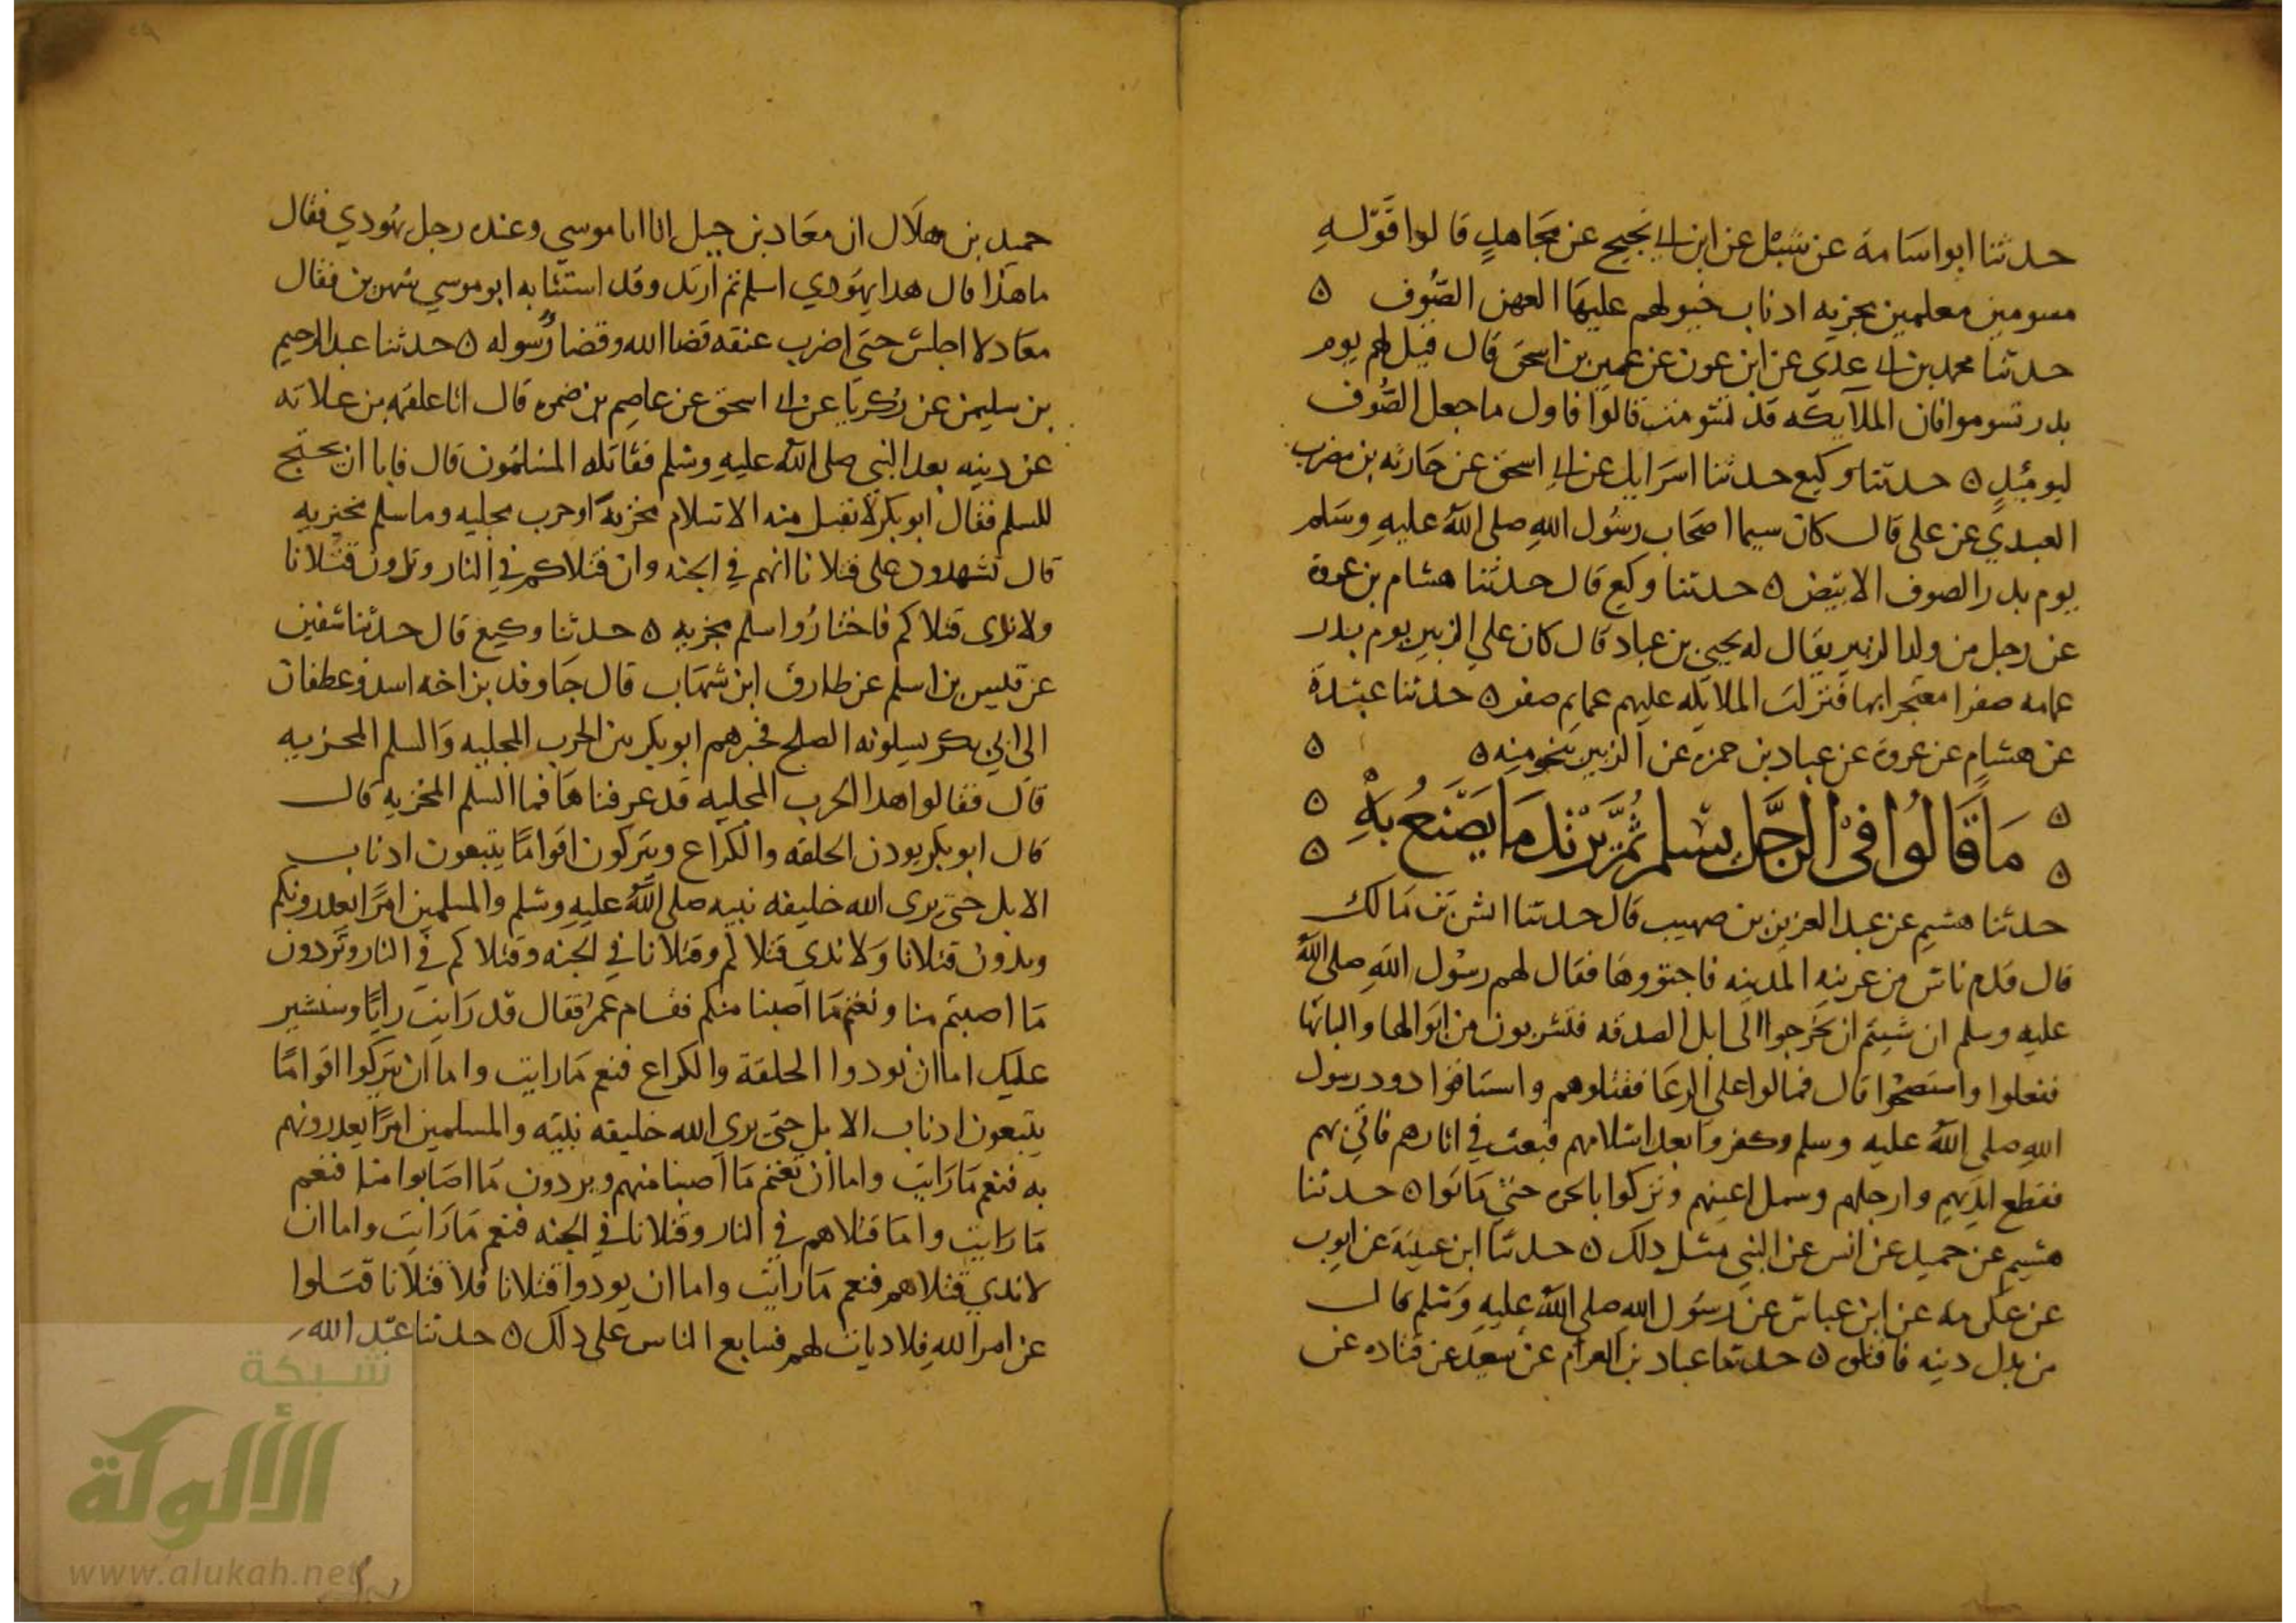 حدثنا ابو اسامة عن شبل عن ابن ابي نجيح عن مجاهد قالوا قوله
مسومين معلمين مجزيه اذناب خيولهم عليها العهن الصوف ٥
حدثنا محمد بن ابي عدي عن ابن عون عن عمير بن اسحق قال قيل لهم يوم
بدر تسوموا فان الملايكه قد تسومت قالوا فاول ما جعل الصوف
ليوميذ ٥ حدثنا وكيع حدثنا اسرايل عن ابي اسحق عن حارثه بن مضرب
العبدي عن علي قال كان سيما اصحاب رسول الله صلى الله عليه وسلم
يوم بدر الصوف الابيض ٥ حدثنا وكيع قال حدثنا هشام بن عروة
عن رجل من ولد الزبير يقال له يحيى بن عباد قال كان علي الزبير يوم بدر
عمامه صفرا معتجرا بها فنزلت الملايكه عليهم عمايم صفر ٥ حدثنا عبدة
عن هشام عن عروة عن عباد بن حمزه عن الزبير بنحو منه ٥ ٥
٥ ما قالوا في الرجل يسلم ثم يرتد ما يصنع به ٥
حدثنا هشيم عن عبد العزيز بن صهيب قال حدثنا انس بن مالك
قال قدم ناس من عرينه المدينه فاجتووها فقال لهم رسول الله صلى الله
عليه وسلم ان شيتم ان تخرجوا الى ابل الصدقه فتشربون من ابوالها والبانها
ففعلوا واستصحوا قال فمالوا علي الرعا فقتلوهم واستاقوا ذود رسول
الله صلى الله عليه وسلم وكفروا بعد اسلامهم فبعث في اثارهم فاتي بهم
فقطع ايديهم وارجلهم وسمل اعينهم وتركوا بالحره حتي ماتوا ٥ حدثنا
هشيم عن حميد عن انس عن النبي مثل ذلك ٥ حدثنا ابن عيينة عن ايوب
عن عكرمه عن ابن عباس عن رسول الله صلى الله عليه وسلم قال
من بدل دينه فاقتلوه ٥ حدثنا عباد بن العوام عن سعيد عن قتاده عن
حميد بن هلال ان معاذ بن جبل اتا ابا موسي وعنده رجل يهودي فقال
ما هذا قال هذا يهودي اسلم ثم ارتد وقد استتابه ابو موسي شهرين فقال
معاذ لا اجلس حتى اضرب عنقه قضا الله وقضا رسوله ٥ حدثنا عبد الرحيم
بن سليمن عن زكريا عن ابي اسحق عن عاصم بن ضمره قال اتا علقمه بن علاثه
عن دينه بعد النبي صلى الله عليه وسلم فقاتله المسلمون قال فابا ان يجنح
للسلم فقال ابو بكر لا نقبل منه الا بسلام مخزيه او حرب مجليه وما سلم مخزيه
قال تشهدون على قتلانا انهم في الجنه وان قتلاكم في النار وتدون قتلانا
ولا ندي قتلاكم فاختاروا سلم مخزيه ٥ حدثنا وكيع قال حدثنا سفين
عن قيس بن اسلم عن طارق ابن شهاب قال جا وفد بزاخه اسد وغطفان
الى ابي بكر يسلونه الصلح فخيرهم ابو بكر بين الحرب المجليه والسلم المخزيه
قال فقالوا هذا الحرب المجليه قد عرفناها فما السلم المخزيه قال
قال ابو بكر يودن الحلقه والكراع ويتركون اقواما يتبعون اذناب
الابل حتى يرى الله خليفه نبيه صلى الله عليه وسلم والمسلمين امرا يعذرونكم
ويدون قتلانا ولا ندي قتلاكم وقتلانا في الجنه وقتلاكم في النار وتردون
ما اصبتم منا ونغنم ما اصبنا منكم فقام عمر فقال قد رايت رايا وسنشير
عليك اما ان يودوا الحلقة والكراع فنعم ما رايت واما ان يتركوا اقواما
يتبعون اذناب الابل حتى يري الله خليفه نبيه والمسلمين امرا يعذرونهم
به فنعم ما رايت واما ان نغنم ما اصبنا منهم ويردون ما اصابوا منا فنعم
ما رايت واما قتلاهم في النار وقتلانا في الجنه فنعم ما رايت واما ان
لا ندي قتلاهم فنعم ما رايت واما ان يودوا قتلانا فلا قتلانا قتلوا
عن امر الله فلا ديات لهم فتبايع الناس على ذلك ٥ حدثنا عبد الله
شبكة
الألوكة
www.alukah.net